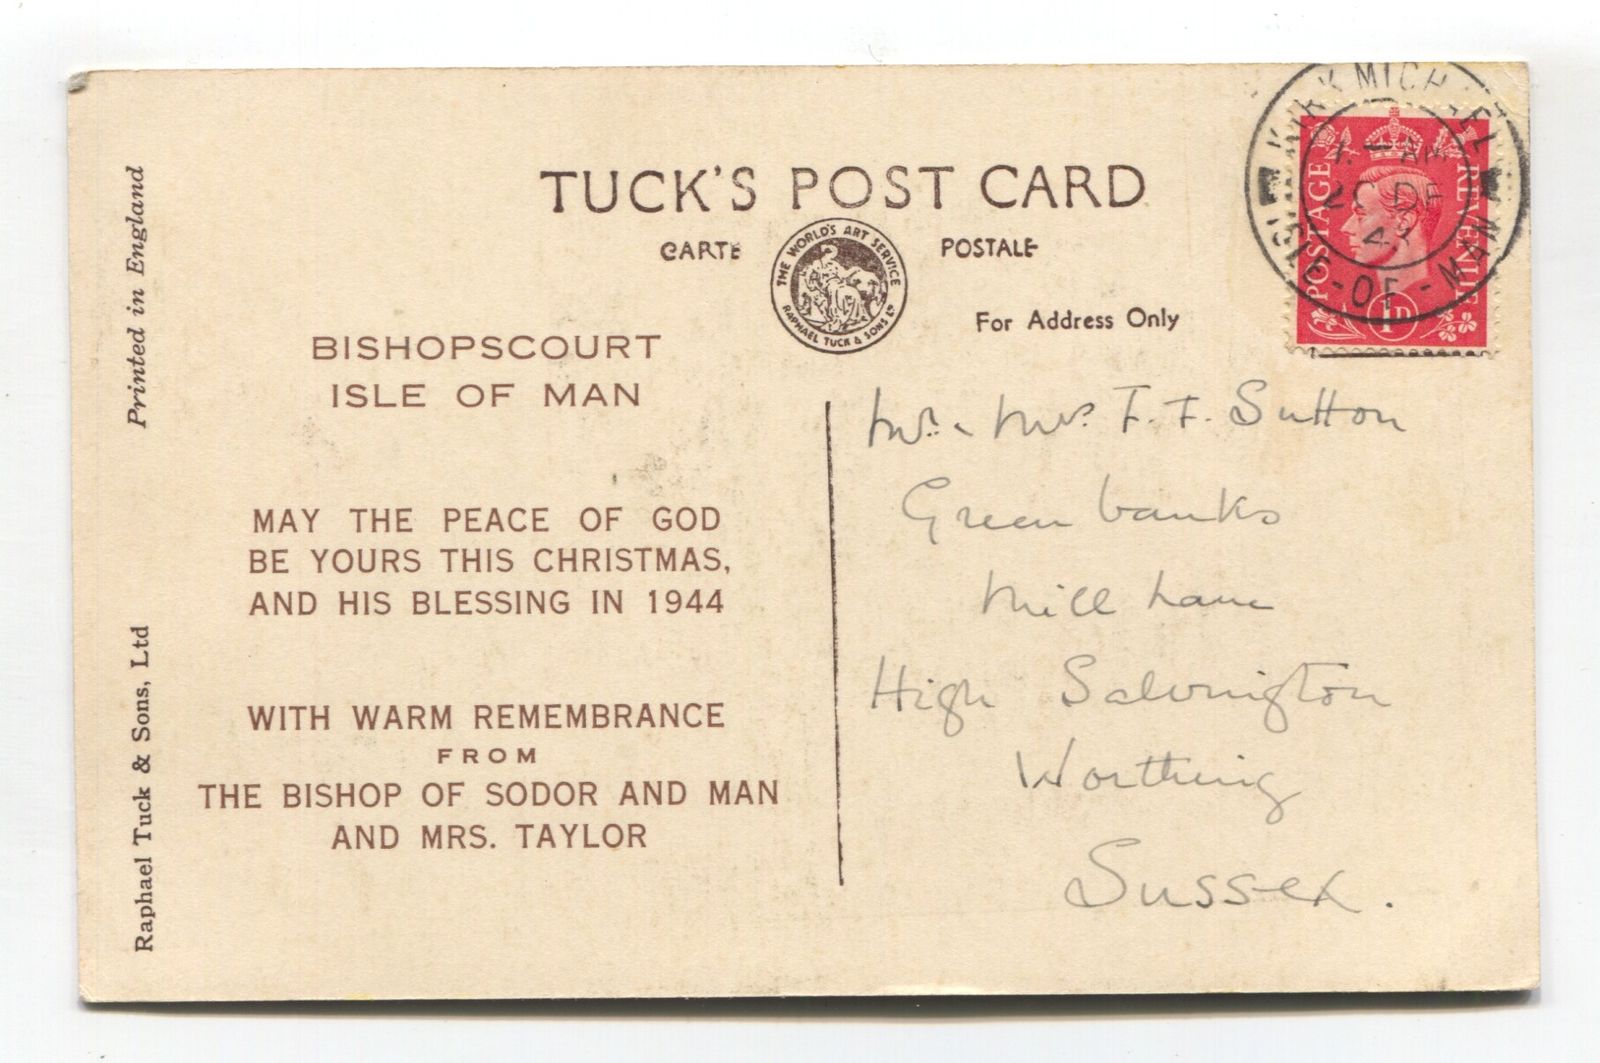 TUCK'S POST CARD
CARTE POSTALE
THE WORLD'S ART SERVICE
RAPHAEL TUCK & SONS LTD
For Address Only
KIRK MICHAEL
AM
DE
ISLE-OF-MAN
POSTAGE
1D
Printed in England
Raphael Tuck & Sons, Ltd
BISHOPSCOURT
ISLE OF MAN
MAY THE PEACE OF GOD
BE YOURS THIS CHRISTMAS,
AND HIS BLESSING IN 1944
WITH WARM REMEMBRANCE
FROM
THE BISHOP OF SODOR AND MAN
AND MRS. TAYLOR
Mr. & Mrs. F. F. Sutton
Greenbanks
Mill Lane
High Salvington
Worthing
Sussex.